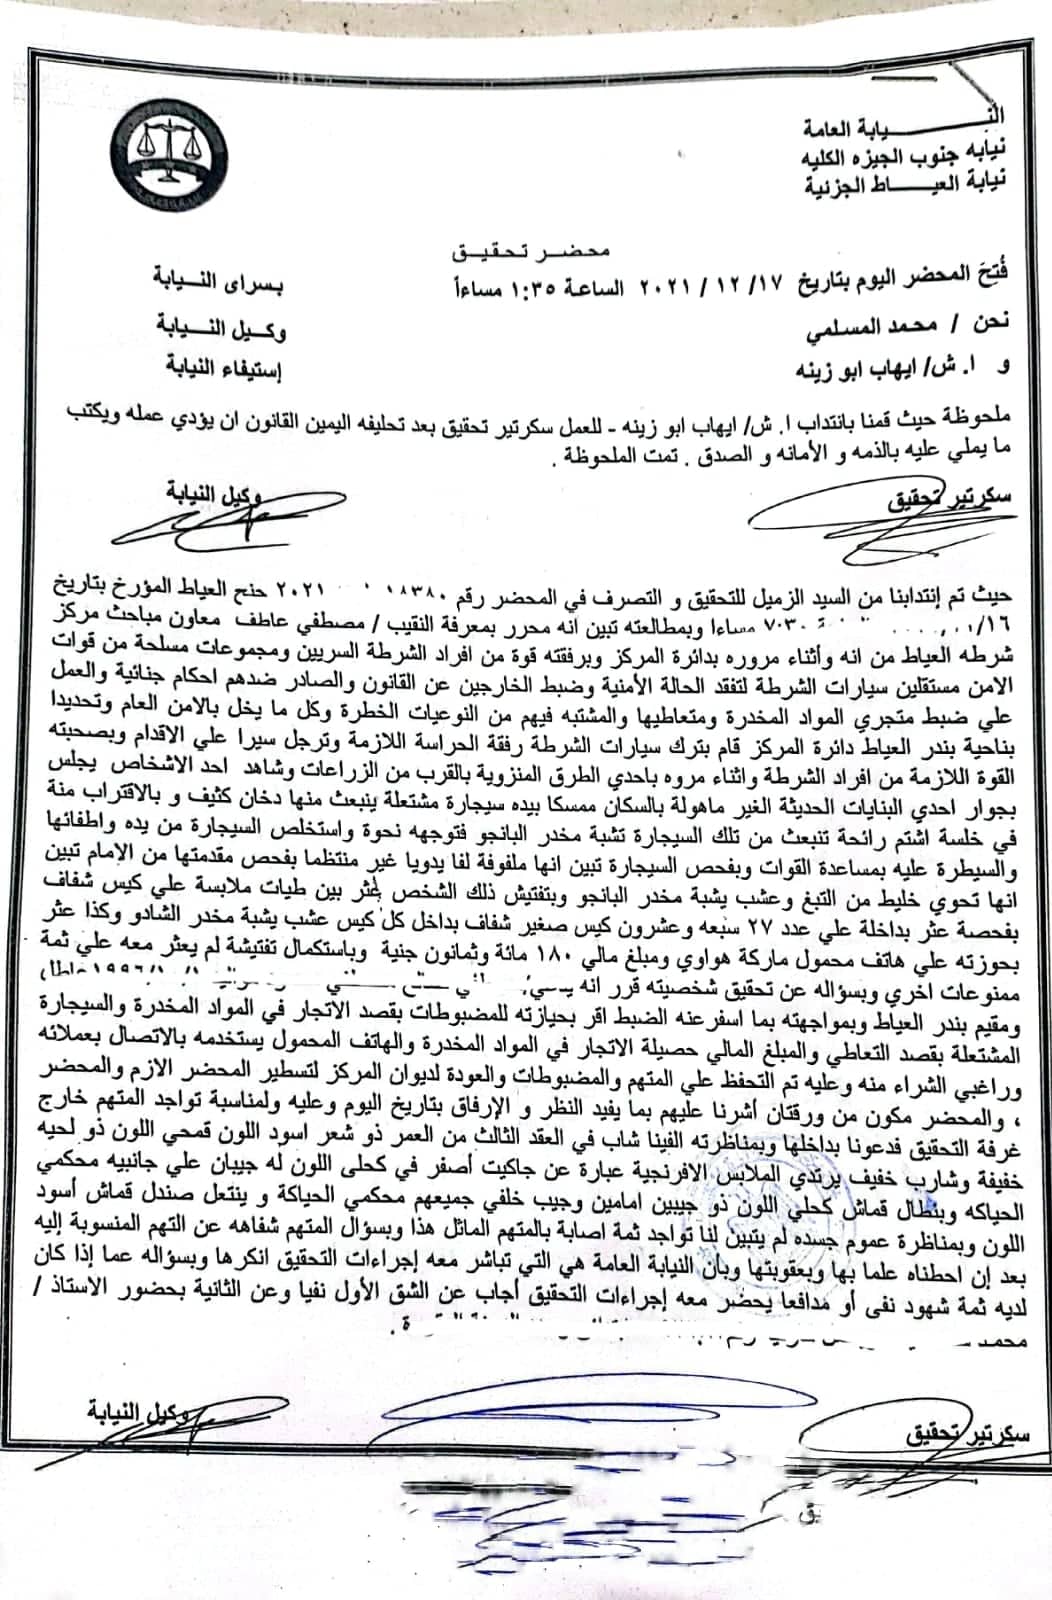 النـــيابة العامة
نيابه جنوب الجيزه الكليه
نيابة العيـــاط الجزئية
محضـر تحقيـق
فُتِحَ المحضر اليوم بتاريخ ١٧/ ١٢ / ٢٠٢١ الساعة ١:٣٥ مساءاً بسراى النـيابة
نحن / محمد المسلمي وكـيل النـيابة
و ا. ش/ ايهاب ابو زينه إستيفاء النيابة
ملحوظة حيث قمنا بانتداب ا. ش/ ايهاب ابو زينه - للعمل سكرتير تحقيق بعد تحليفه اليمين القانون ان يؤدي عمله ويكتب
ما يملي عليه بالذمه و الأمانه و الصدق . تمت الملحوظة .
سكرتير تحقيق وكيل النيابة
حيث تم إنتدابنا من السيد الزميل للتحقيق و التصرف في المحضر رقم ١٨٣٨٠ ٢٠٢١ جنح العياط المؤرخ بتاريخ
١٦/ ٧:٣٠ مساءا وبمطالعته تبين انه محرر بمعرفة النقيب / مصطفي عاطف معاون مباحث مركز
شرطه العياط من انه وأثناء مروره بدائرة المركز وبرفقته قوة من افراد الشرطة السريين ومجموعات مسلحة من قوات
الامن مستقلين سيارات الشرطة لتفقد الحالة الأمنية وضبط الخارجين عن القانون والصادر ضدهم احكام جنائية والعمل
علي ضبط متجري المواد المخدرة ومتعاطيها والمشتبه فيهم من النوعيات الخطرة وكل ما يخل بالامن العام وتحديدا
بناحية بندر العياط دائرة المركز قام بترك سيارات الشرطة رفقة الحراسة اللازمة وترجل سيرا علي الاقدام وبصحبته
القوة اللازمة من افراد الشرطة واثناء مروه باحدي الطرق المنزوية بالقرب من الزراعات وشاهد احد الاشخاص يجلس
بجوار احدي البنايات الحديثة الغير ماهولة بالسكان ممسكا بيده سيجارة مشتعلة ينبعث منها دخان كثيف و بالاقتراب منة
في خلسة اشتم رائحة تنبعث من تلك السيجارة تشبة مخدر البانجو فتوجهه نحوة واستخلص السيجارة من يده واطفائها
والسيطرة عليه بمساعدة القوات وبفحص السيجارة تبين انها ملفوفة لفا يدويا غير منتظما بفحص مقدمتها من الامام تبين
انها تحوي خليط من التبغ وعشب يشبة مخدر البانجو وبتفتيش ذلك الشخص عُثر بين طيات ملابسة علي كيس شفاف
بفحصة عثر بداخلة علي عدد ٢٧ سبعه وعشرون كيس صغير شفاف بداخل كل كيس عشب يشبة مخدر الشادو وكذا عثر
بحوزته علي هاتف محمول ماركة هواوي ومبلغ مالي ١٨٠ مائة وثمانون جنية وباستكمال تفتيشة لم يعثر معه علي ثمة
ممنوعات اخري وبسؤاله عن تحقيق شخصيته قرر انه
ومقيم بندر العياط وبمواجهته بما اسفرعنه الضبط اقر بحيازته للمضبوطات بقصد الاتجار في المواد المخدرة والسيجارة
المشتعلة بقصد التعاطي والمبلغ المالي حصيلة الاتجار في المواد المخدرة والهاتف المحمول يستخدمه بالاتصال بعملائه
وراغبي الشراء منه وعليه تم التحفظ علي المتهم والمضبوطات والعودة لديوان المركز لتسطير المحضر الازم والمحضر
، والمحضر مكون من ورقتان أشرنا عليهم بما يفيد النظر و الإرفاق بتاريخ اليوم وعليه ولمناسبة تواجد المتهم خارج
غرفة التحقيق فدعونا بداخلها وبمناظرته الفينا شاب في العقد الثالث من العمر ذو شعر اسود اللون قمحي اللون ذو لحيه
خفيفة وشارب خفيف يرتدي الملابس الافرنجية عبارة عن جاكيت أصفر في كحلى اللون له جيبان علي جانبيه محكمي
الحياكه وبنطال قماش كحلي اللون ذو جيبين امامين وجيب خلفي جميعهم محكمي الحياكة و ينتعل صندل قماش أسود
اللون وبمناظرة عموم جسده لم يتبين لنا تواجد ثمة اصابة بالمتهم الماثل هذا وبسؤال المتهم شفاهه عن التهم المنسوبة إليه
بعد إن احطناه علما بها وبعقوبتها وبأن النيابة العامة هي التي تباشر معه إجراءات التحقيق انكرها وبسؤاله عما إذا كان
لديه ثمة شهود نفى أو مدافعا يحضر معه إجراءات التحقيق أجاب عن الشق الأول نفيا وعن الثانية بحضور الاستاذ /
محمد
سكرتير تحقيق وكيل النيابة